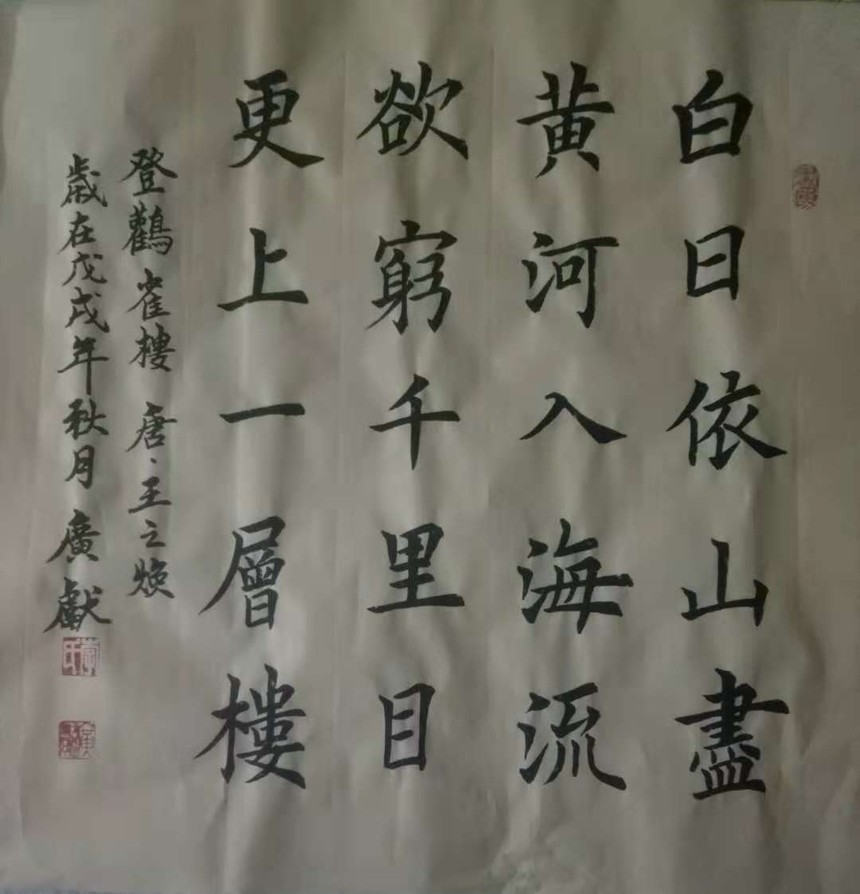 白日依山盡
黄河入海流
欲窮千里目
更上一層樓
登鸛雀樓 唐、王之焕
歳在戊戌年秋月 廣獻